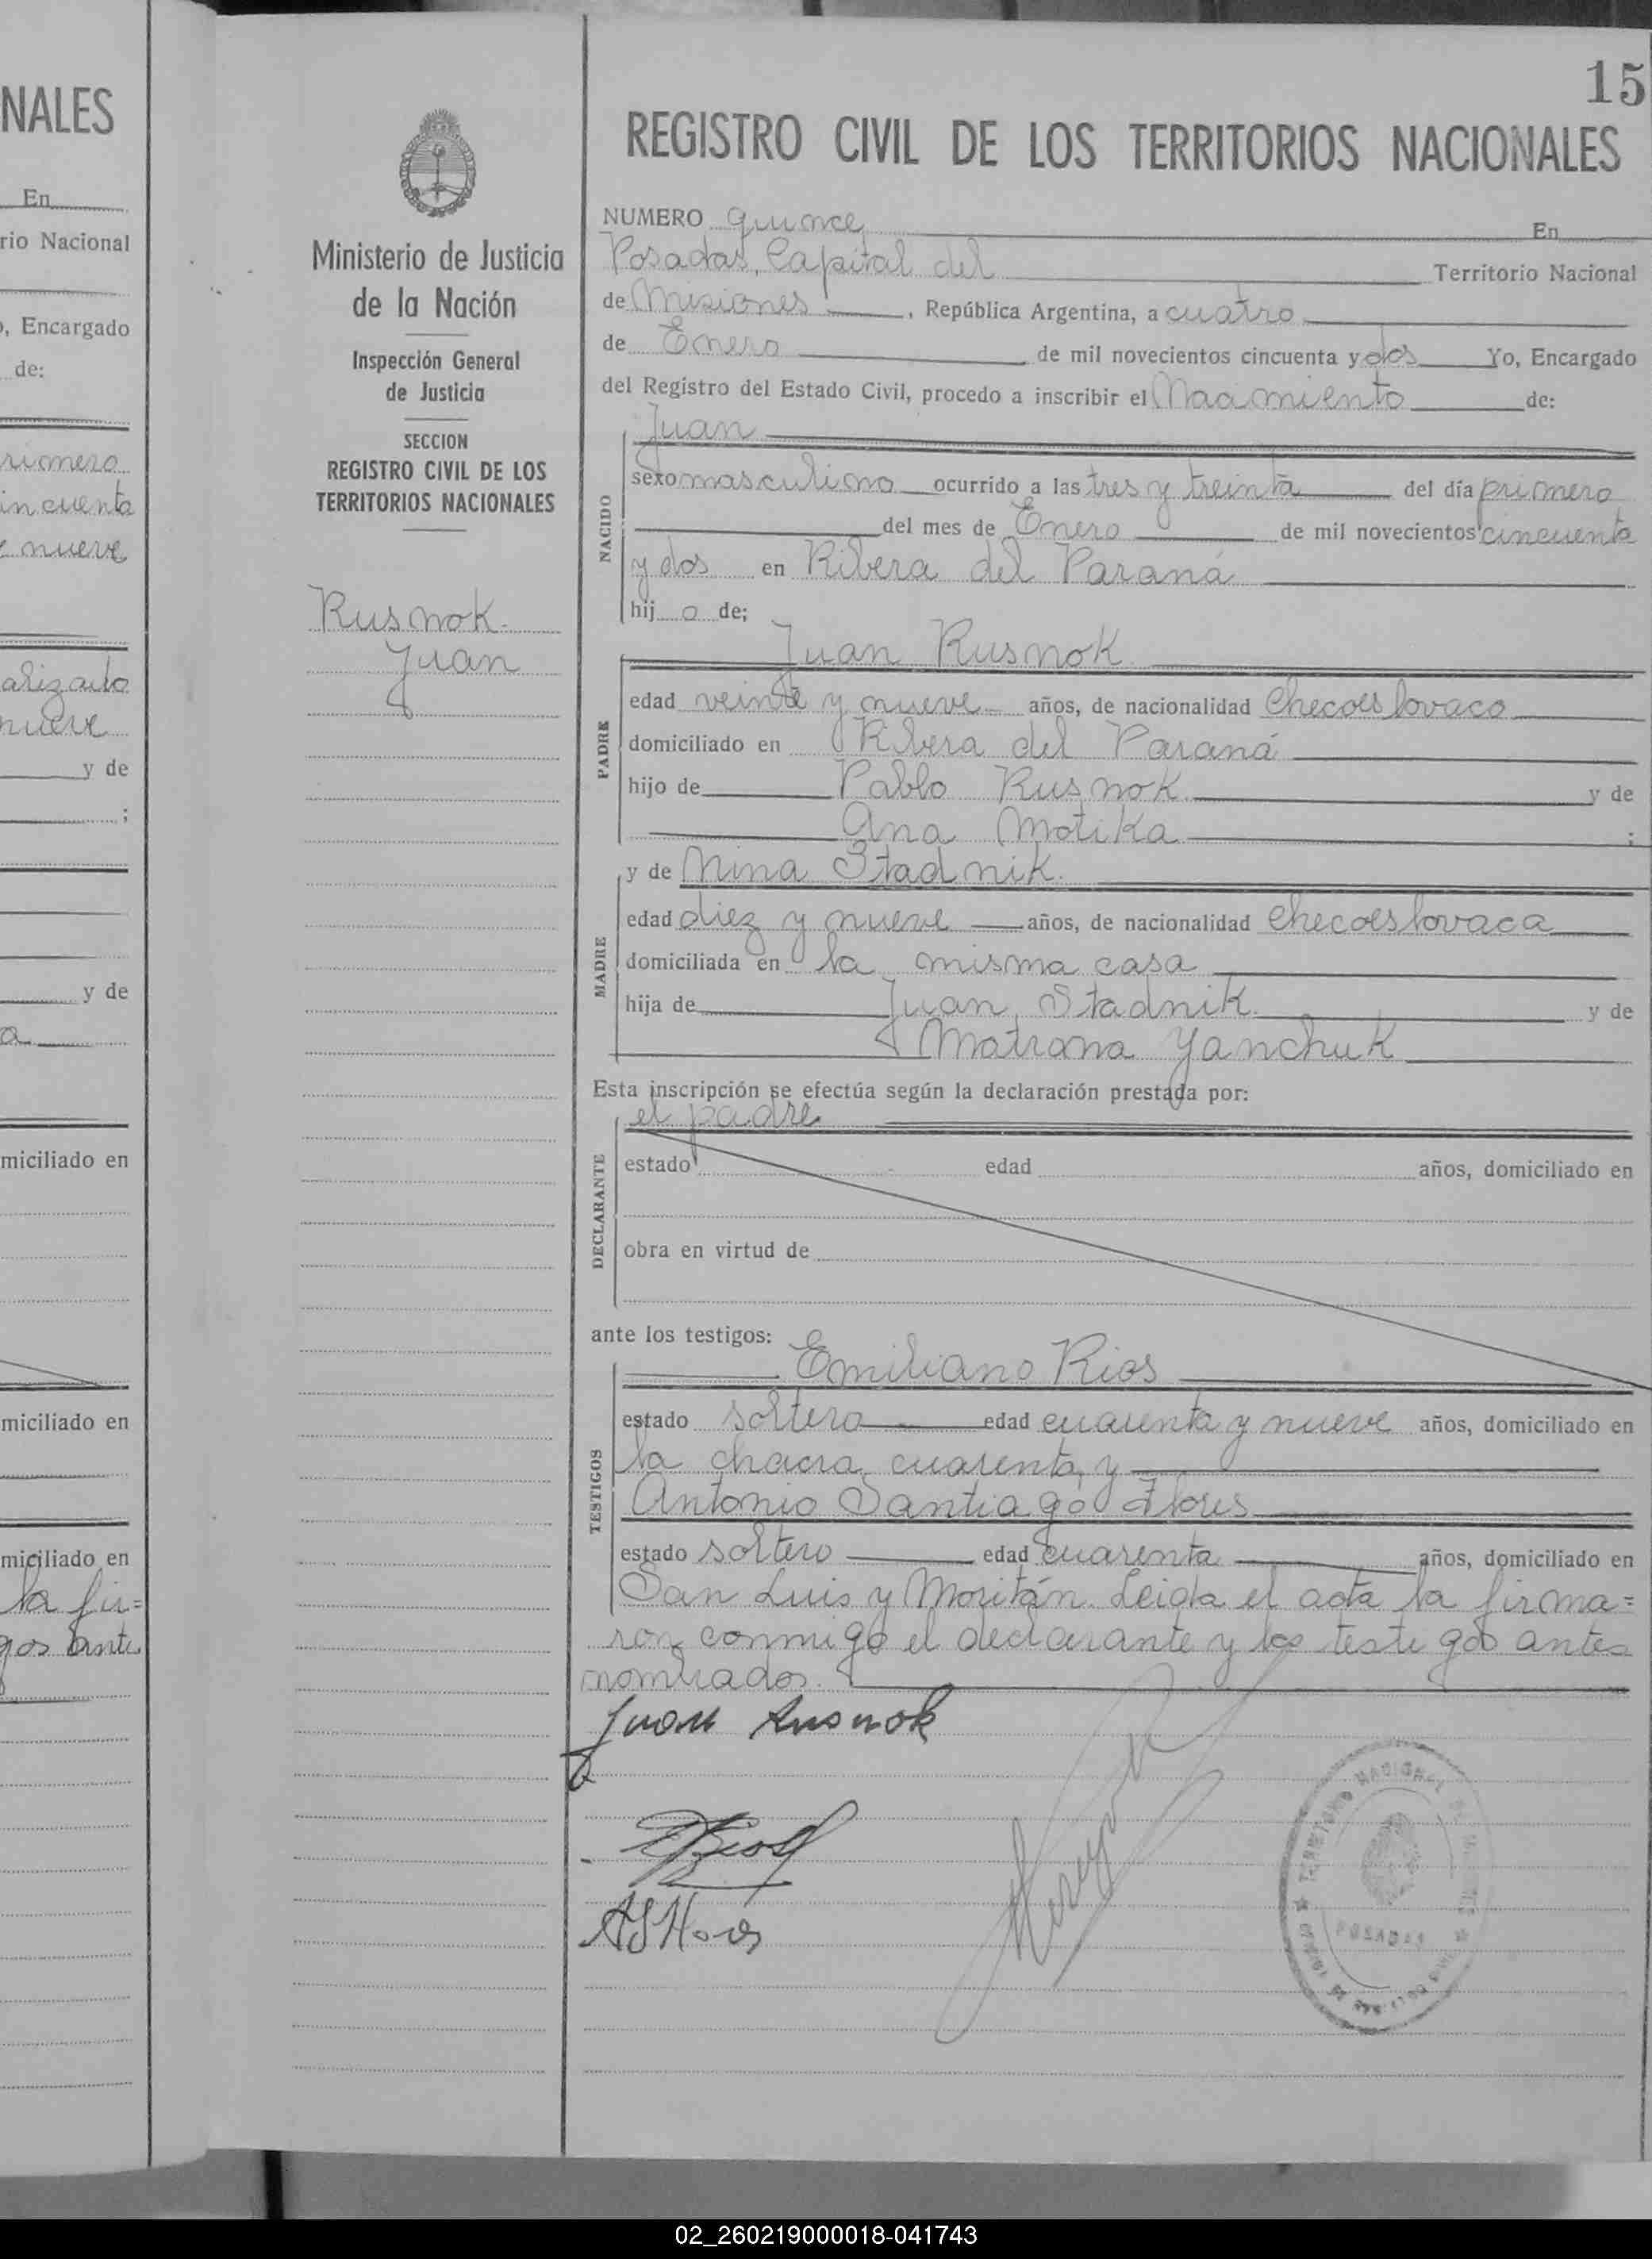 NALES
En
rio Nacional
, Encargado
de:
rimero
incuenta
nueve
alizado
nueve
y de
;
y de
a
miciliado en
miciliado en
miciliado en
la fir=
gos ante
Ministerio de Justicia
de la Nación
Inspección General
de Justicia
SECCION
REGISTRO CIVIL DE LOS
TERRITORIOS NACIONALES
Rusnok
Juan
15
REGISTRO CIVIL DE LOS TERRITORIOS NACIONALES
NUMERO quince En
Posadas, Capital del Territorio Nacional
de Misiones, República Argentina, a cuatro
de Enero de mil novecientos cincuenta y dos Yo, Encargado
del Registro del Estado Civil, procedo a inscribir el Nacimiento de:
Juan
NACIDO
sexo masculino ocurrido a las tres y treinta del día primero
del mes de Enero de mil novecientos cincuenta
y dos en Ribera del Paraná
hijo de;
Juan Rusnok
PADRE
edad veinte y nueve años, de nacionalidad Checoeslovaco
domiciliado en Ribera del Paraná
hijo de Pablo Rusnok y de
Ana Motika ;
y de Nina Stadnik.
MADRE
edad diez y nueve años, de nacionalidad Checoeslovaca
domiciliada en la misma casa
hija de Juan Stadnik y de
Matrona Yanchuk
Esta inscripción se efectúa según la declaración prestada por:
el padre
DECLARANTE
estado edad años, domiciliado en
obra en virtud de
ante los testigos:
Emiliano Rios
TESTIGOS
estado soltero edad cuarenta y nueve años, domiciliado en
la chacra cuarenta y
Antonio Santiago Flores
estado soltero edad cuarenta años, domiciliado en
San Luis y Moritán. Leida el acta la firma=
ron conmigo el declarante y los testigos antes
nombrados.
Juan Rusnok
POSADAS
02_260219000018-041743